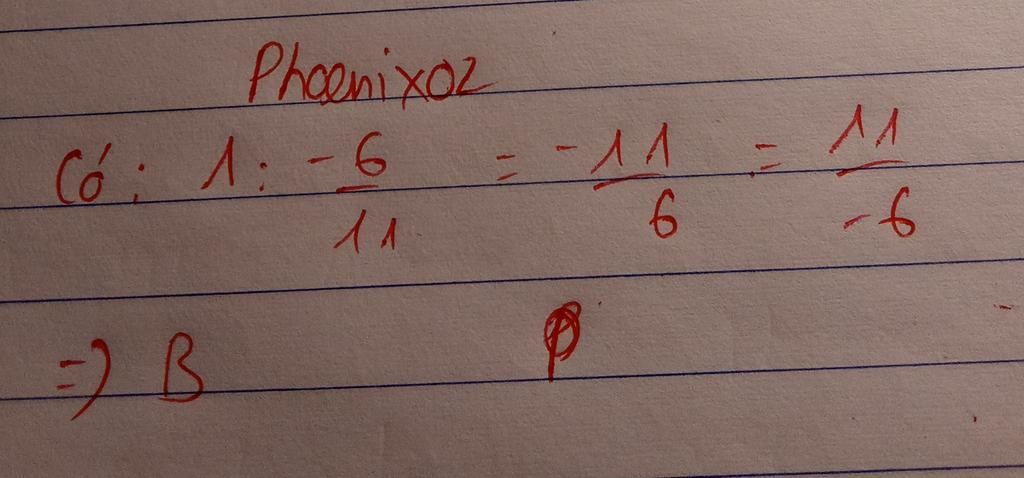 Phoenix02
Có: 1: -6/11 = -11/6 = 11/-6
=) B